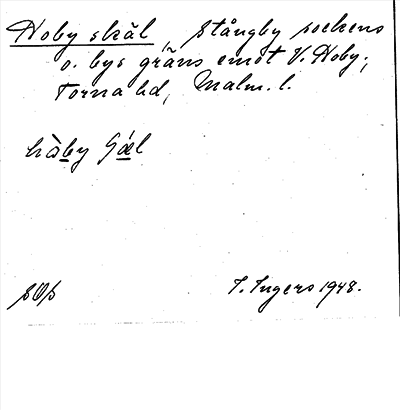 Hoby skäl, Stångby sockens
o. bys gräns emot V. Hoby;
Torna hd, Malm. l.
hòby
SOp I. Ingers 1948.